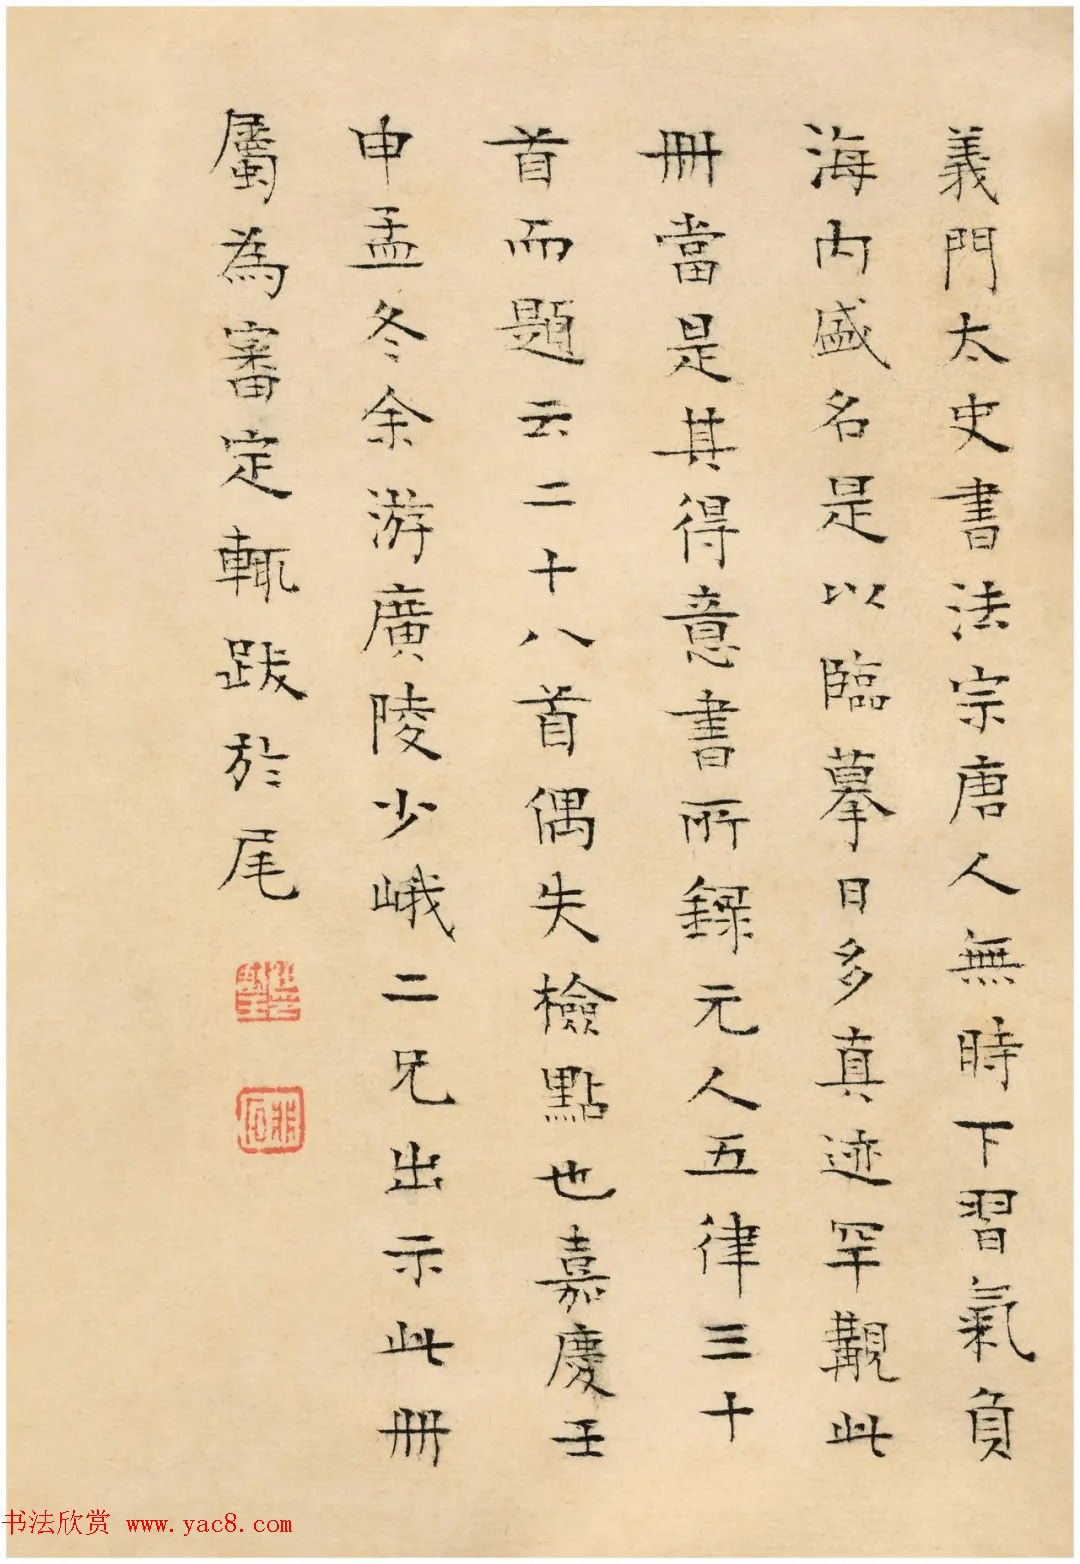 義門太史書法宗唐人無時下習氣負
海内盛名是以臨摹日多真迹罕覯此
冊當是其得意書所録元人五律三十
首而題云二十八首偶失檢點也嘉慶壬
申孟冬余游廣陵少峨二兄出示此冊
屬為審定輒跋於尾
书法欣赏 www.yac8.com